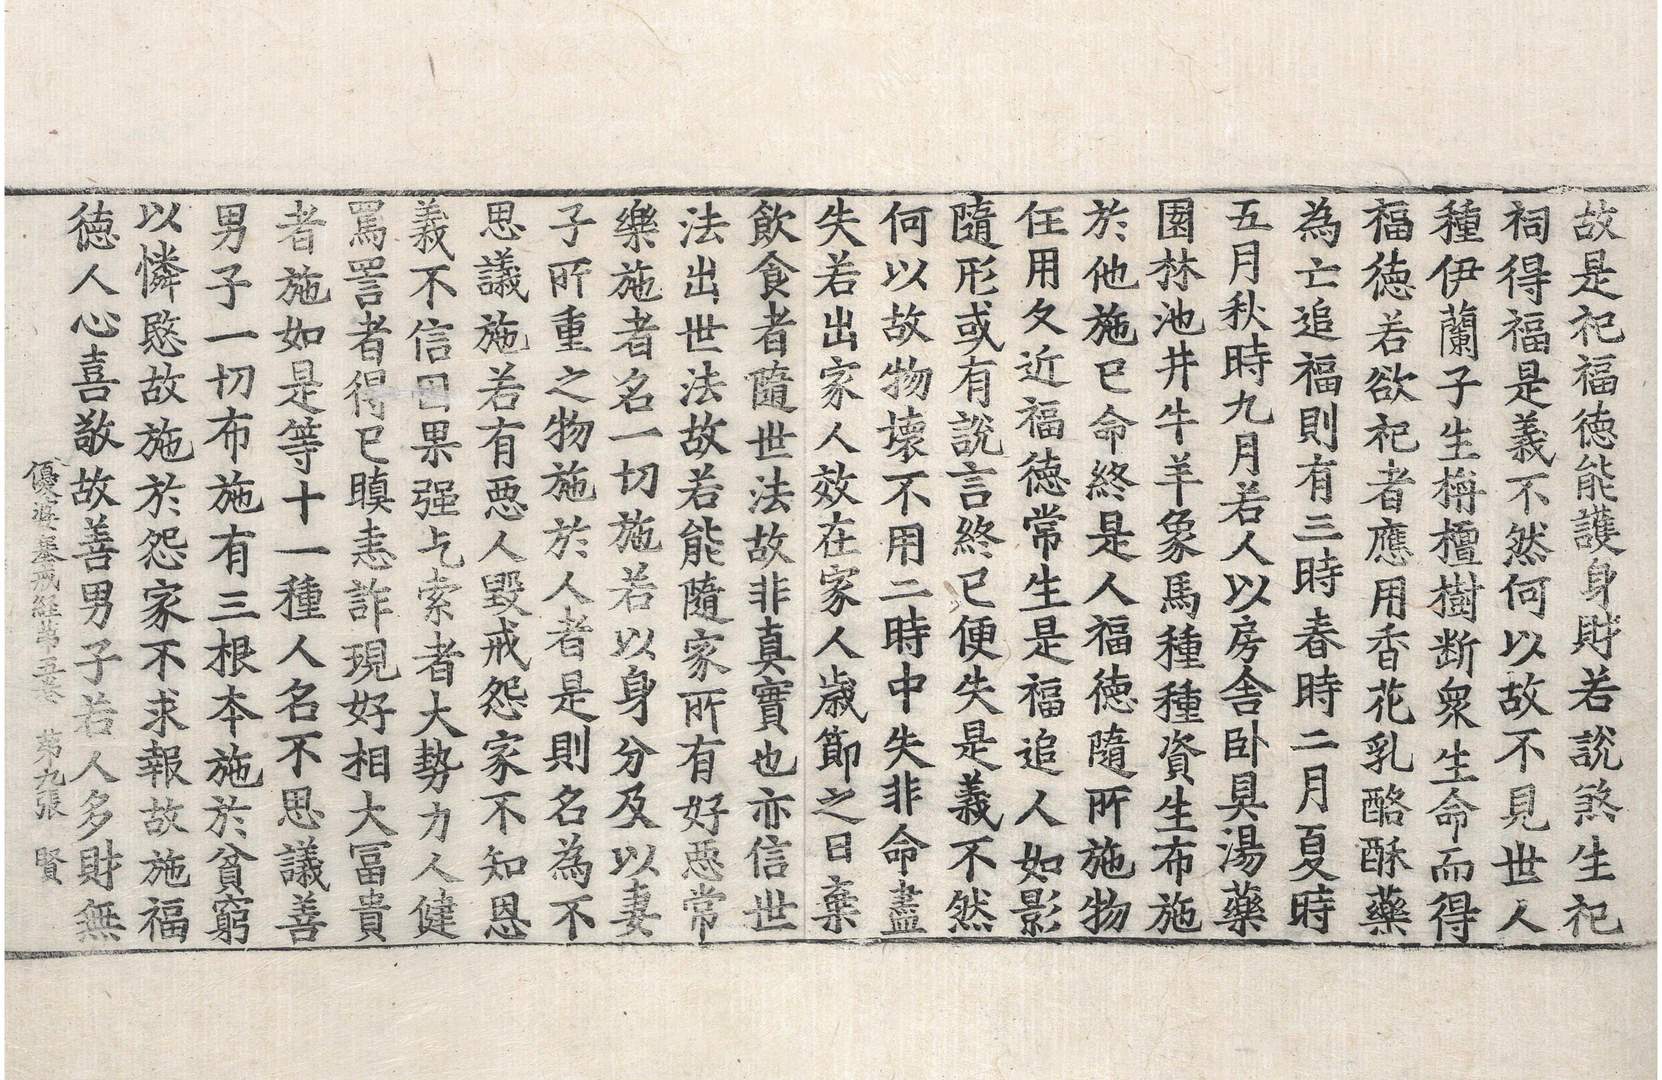 故是祀福德能護身財若說煞生祀
祠得福是義不然何以故不見世人
種伊蘭子生栴檀樹斷衆生命而得
福德若欲祀者應用香花乳酪酥藥
為亡追福則有三時春時二月夏時
五月秋時九月若人以房舍卧具湯藥
園林池井牛羊象馬種種資生布施
於他施已命終是人福德隨所施物
任用久近福德常生是福追人如影
隨形或有說言終已便失是義不然
何以故物壞不用二時中失非命盡
失若出家人效在家人歲節之日棄
飲食者隨世法故非真實也亦信世
法出世法故若能隨家所有好惡常
樂施者名一切施若以身分及以妻
子所重之物施於人者是則名為不
思議施若有惡人毀戒怨家不知恩
義不信因果强乞索者大勢力人健
罵詈者得已瞋恚詐現好相大冨貴
者施如是等十一種人名不思議善
男子一切布施有三根本施於貧窮
以憐愍故施於怨家不求報故施福
德人心喜敬故善男子若人多財無
優婆塞戒經第五卷　第九張　賢